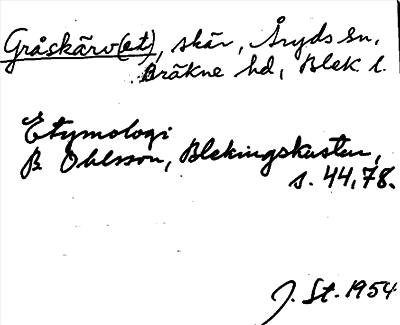 Gråskärv(et), skär, Åryds sn.
Bräkne hd, Blek. l.
Etymologi
B. Ohlsson, Blekingskusten,
s. 44, 78.
J. St. 1954